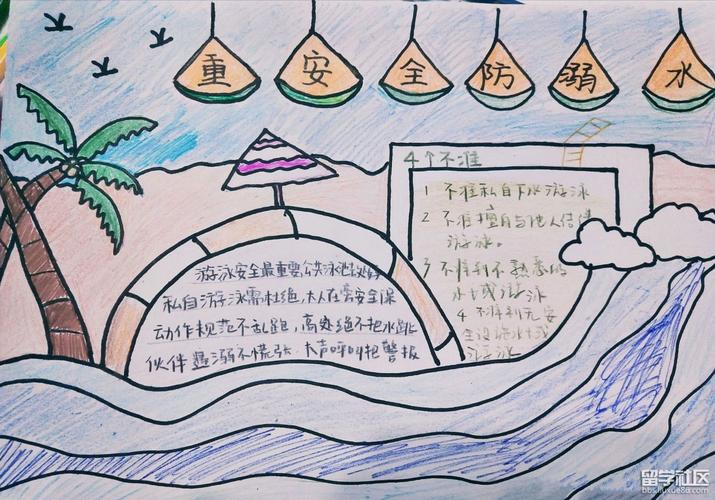 重安全防溺水
游泳安全最重要,公共泳池
私自游泳需杜绝,大人在旁安全保
动作规范不乱跑,高处绝不把水跳
伙伴遇溺不慌张,大声呼叫把警报
4个不准
1 不准私自下水游泳
2 不准擅自与他人结伴
游泳。
3 不准到不熟悉的
水域游泳
4 不准到无安
全设施水域
游泳
留学社区
bbs.liuxue86.com